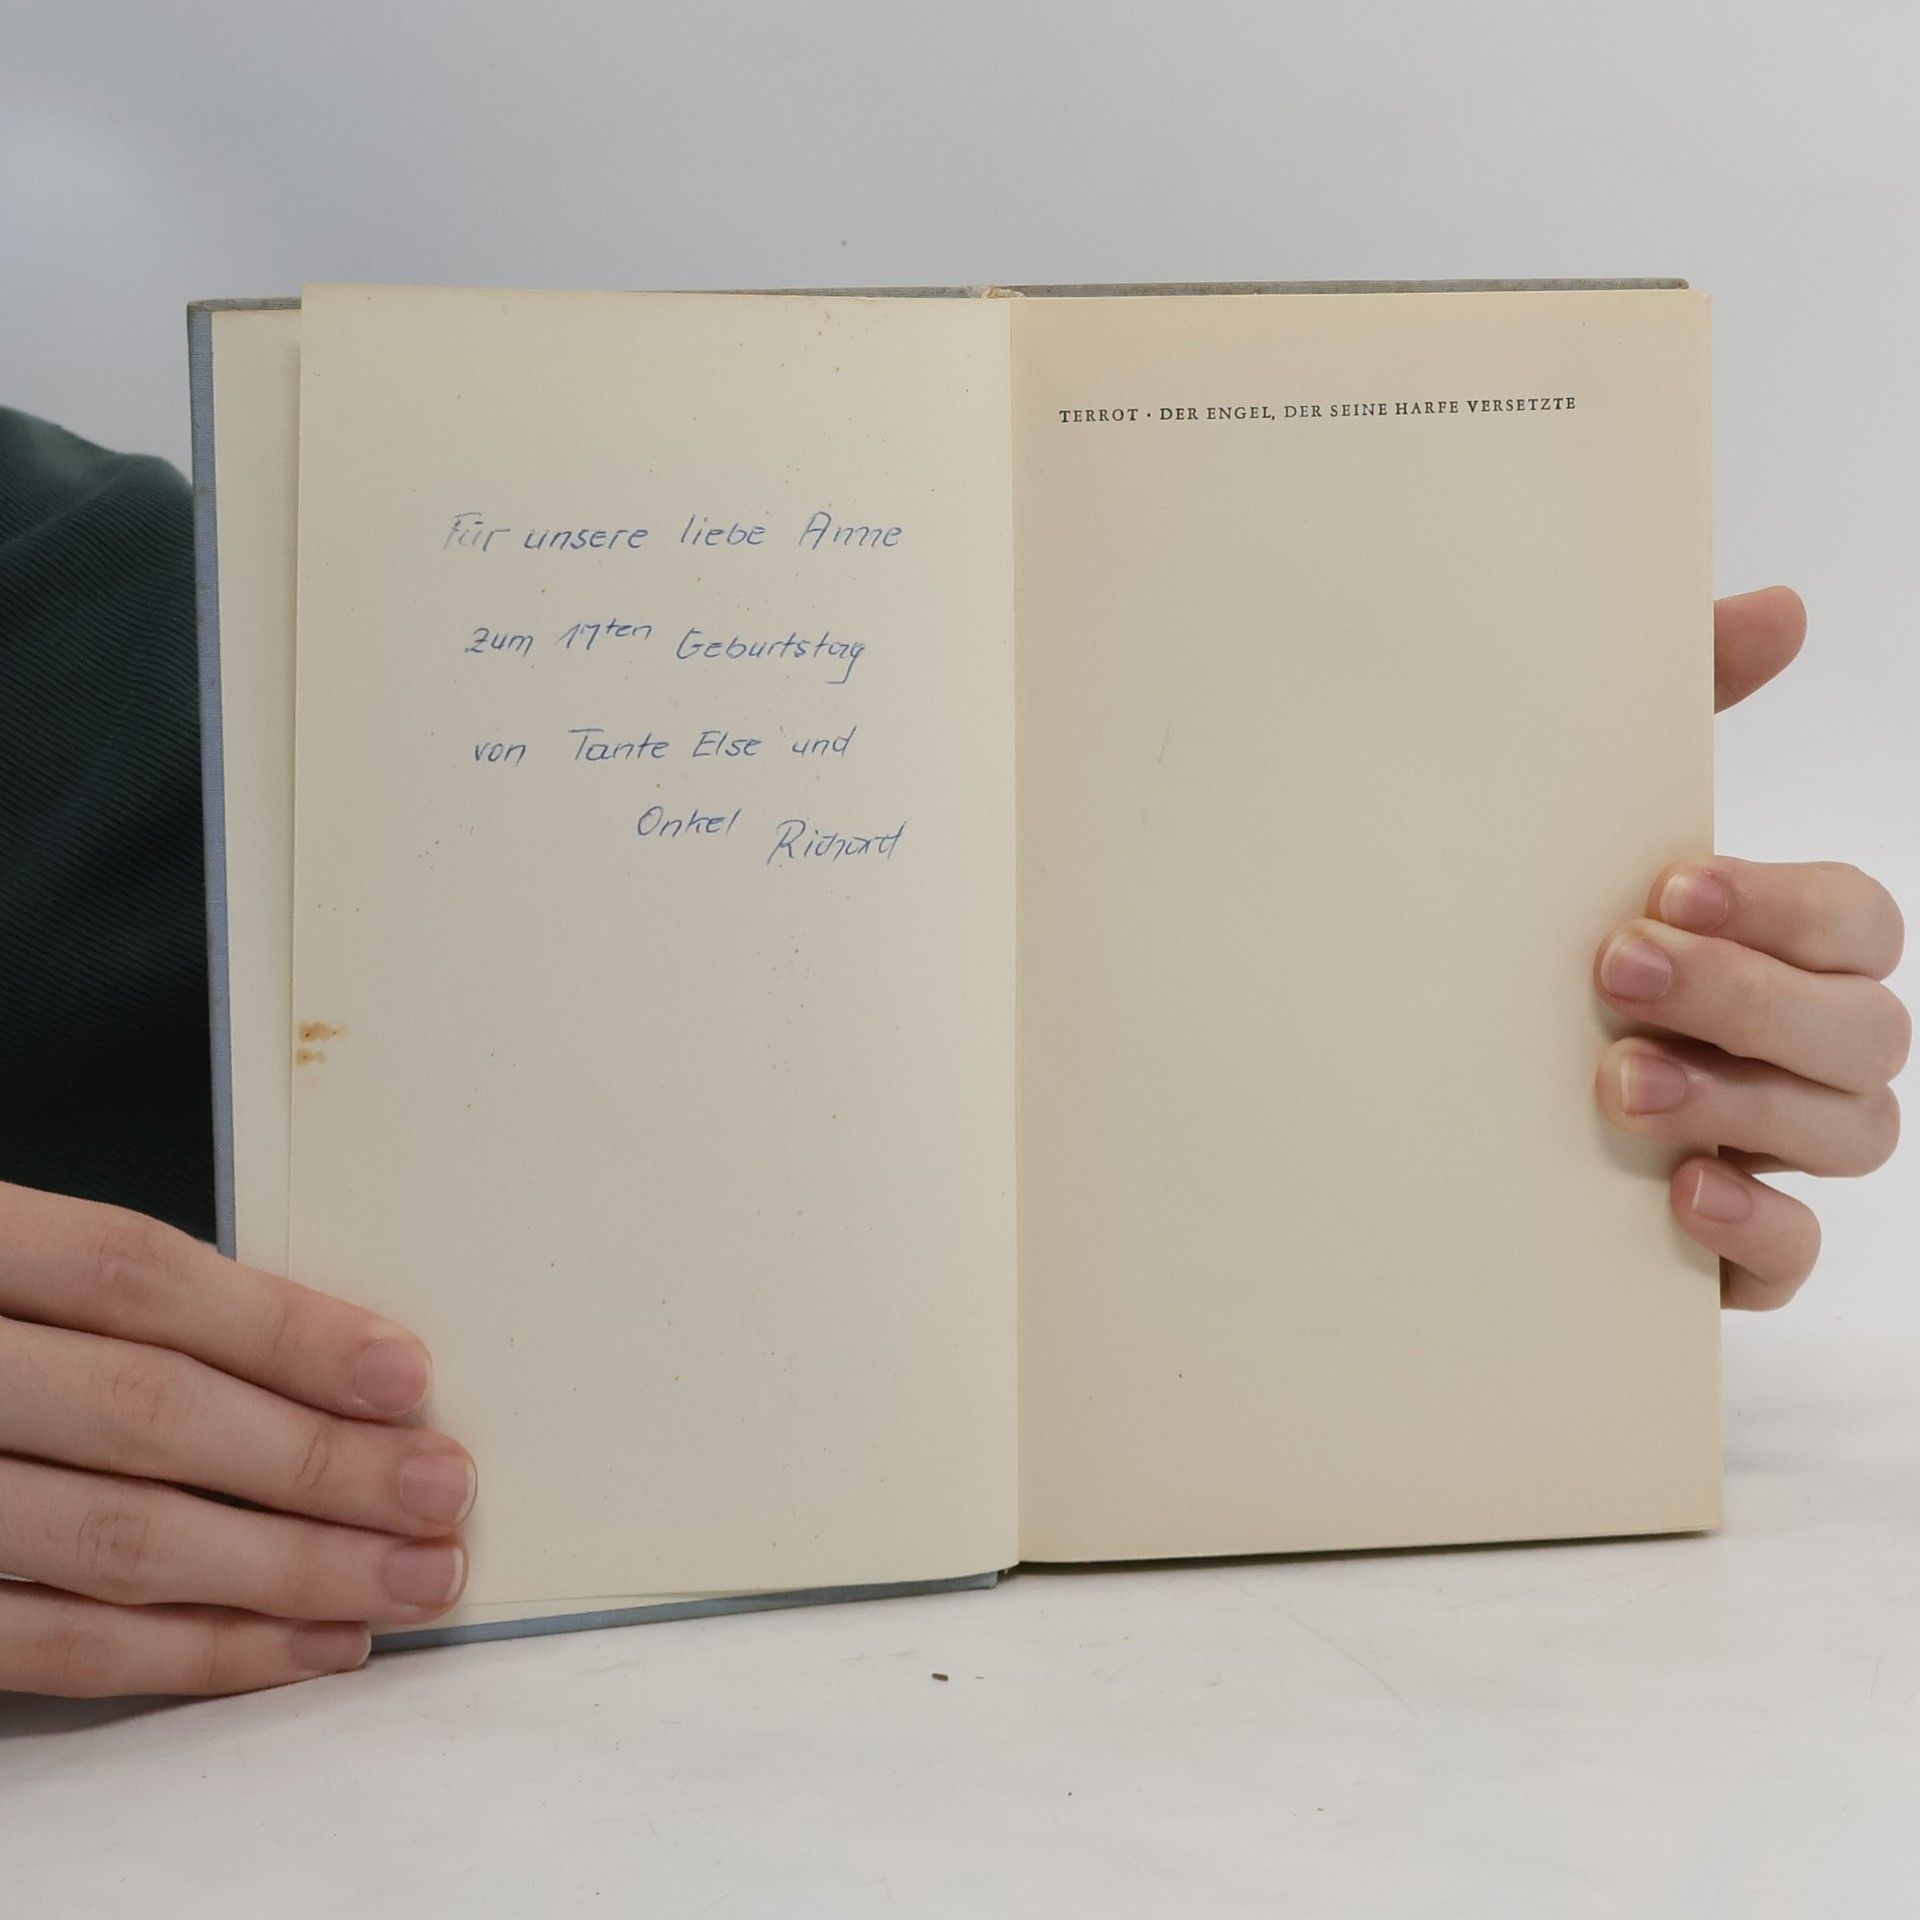 Für unsere liebe Anne
zum 17ten Geburtstag
von Tante Else und
Onkel Richard
TERROT · DER ENGEL, DER SEINE HARFE VERSETZTE